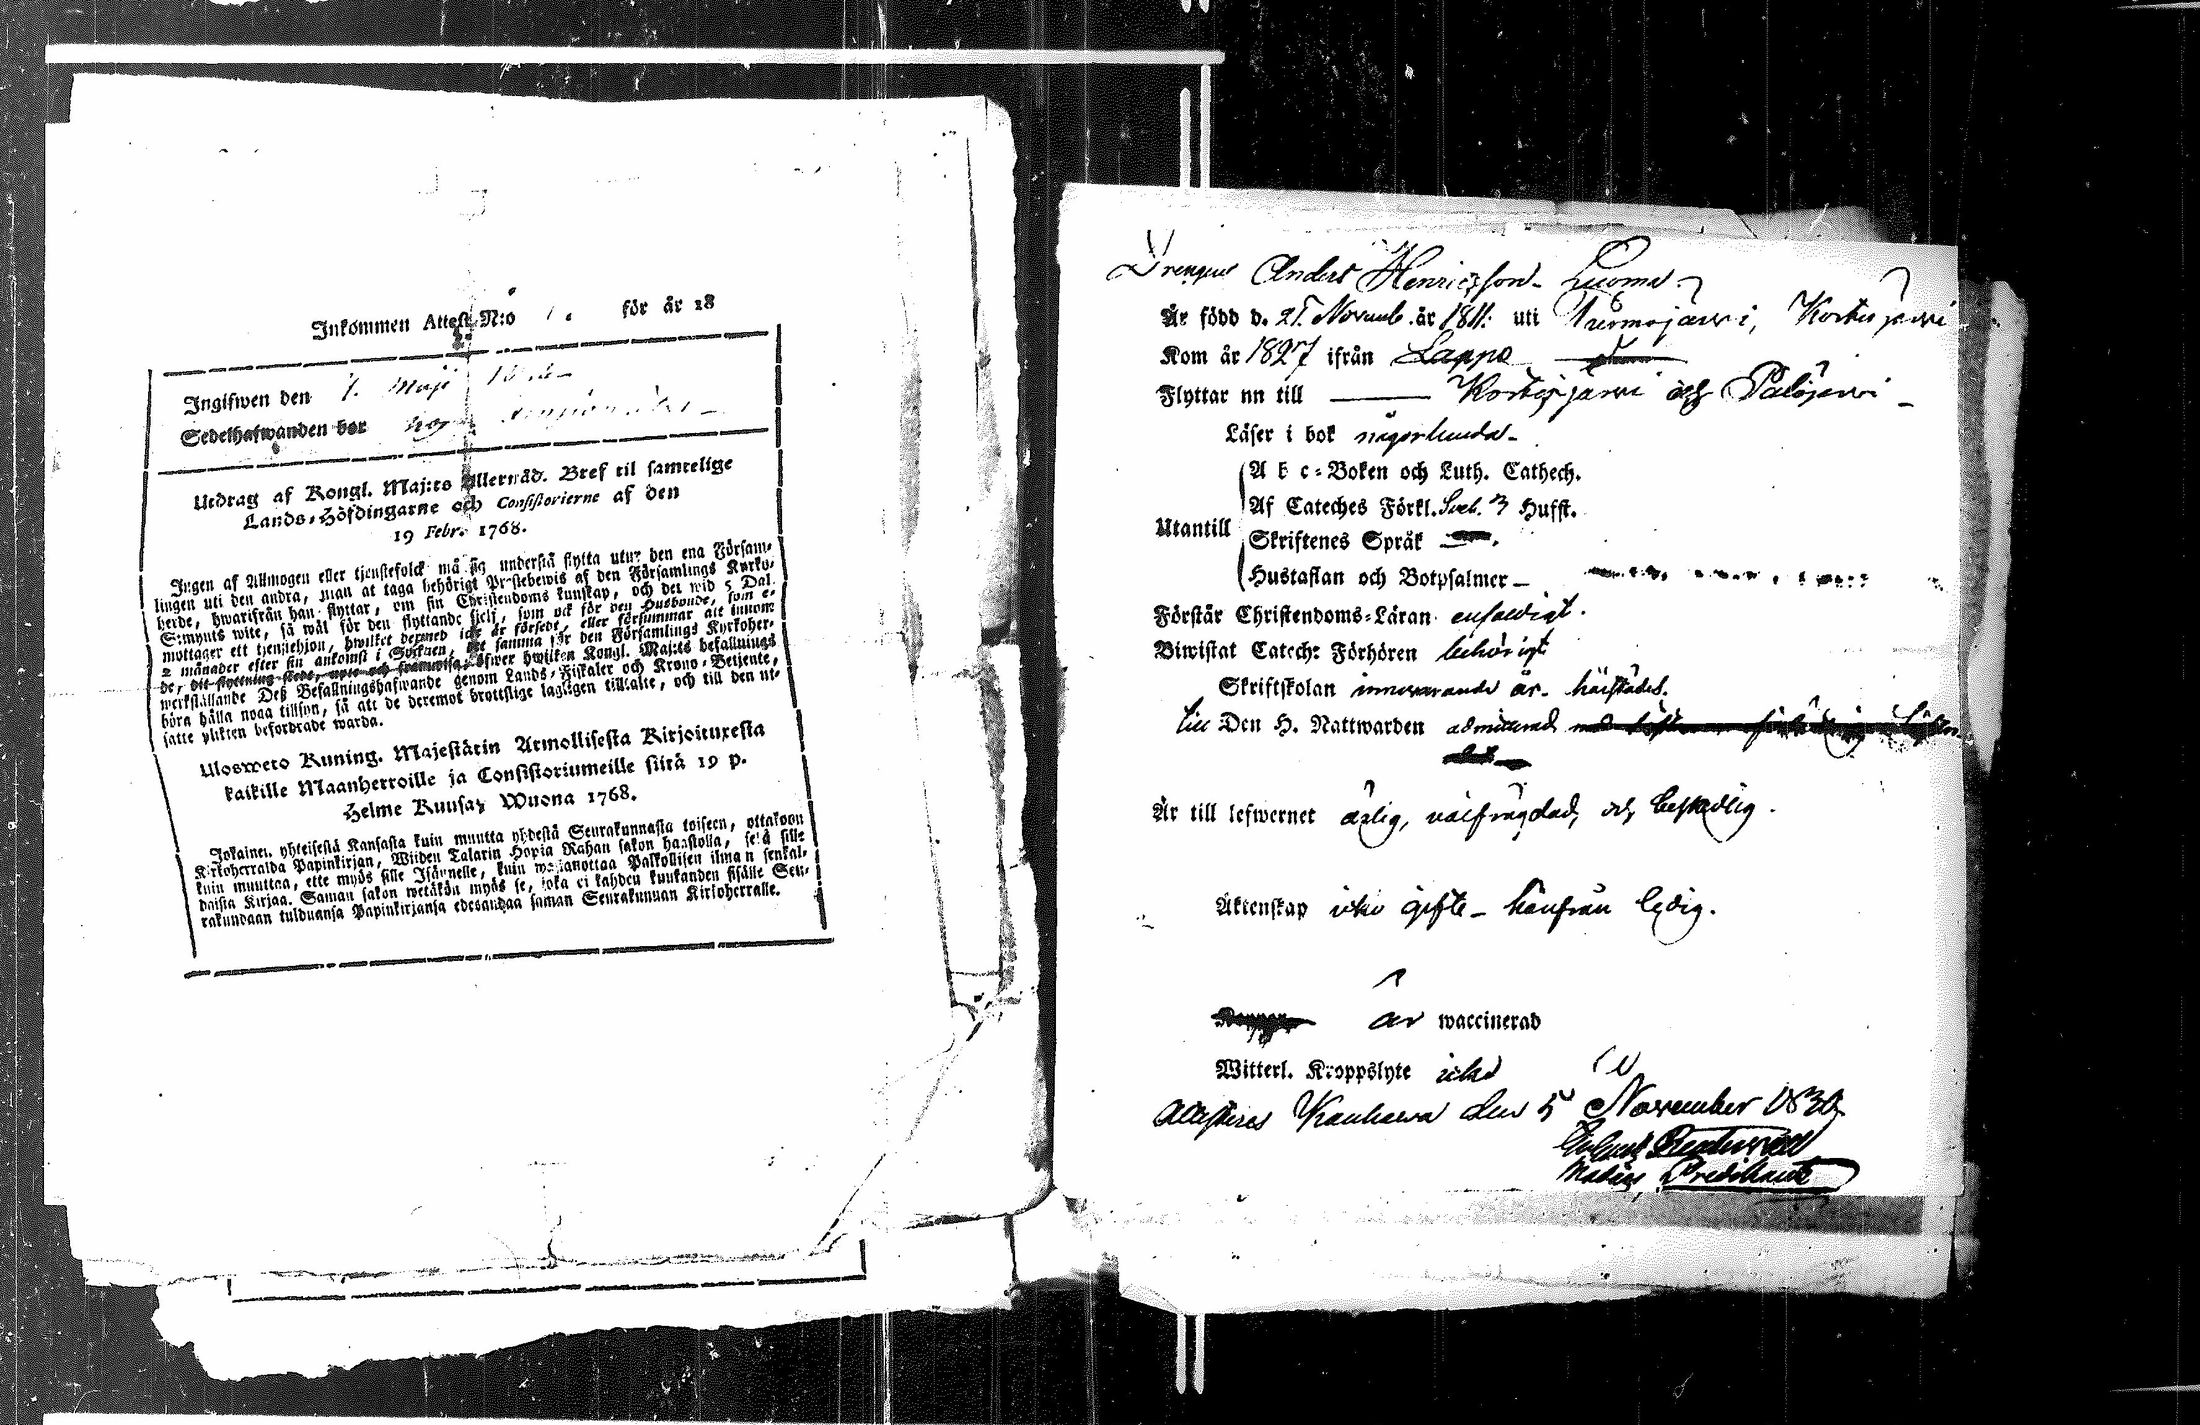 Inkommen Attest N:o för år 18
Ingifwen den 7. Maji
Sedelhafwanden bor hos
Utdrag af Kongl. Maj:ts Allernåd. Bref til samtelige
Lands-Höfdingarne och Consistorierne af den
19 Febr. 1768.
Ingen af Allmogen eller tjenstefolck må sig understå flytta utur den ena Försam-
lingen uti den andra, utan at taga behörigt Prestebewis af den Församlings Kyrko-
herde, hwarifrån han flyttar, om sin Christendoms kunskap, och det wid 5 Dal.
S:mynts wite, så wäl för den flyttande sjelf, som ock för den Husbonde, som e-
mottager ett tjenstehjon, hwilket dermed icke är försedt, eller försummar att innom
2 månader efter sin ankomst i Socknen, det samma för den Församlings Kyrkoher-
de, dit flyttning skedt, upte och framwisa; öfwer hwilken Kongl. Maj:ts befallnings
werkställande Deß Befallningshafwande genom Lands-Fiskaler och Krono-Betjente,
böra hålla noga tillsyn, så att de deremot brottslige lagligen tilltalte, och till den ut-
satte plikten befordrade warda.
Ulosweto Kuning. Majestärin Armollisesta Kirjoituxesta
kaikille Maanherroille ja Consistoriumeille siitä 19 p.
Helme Kuusa, Wuona 1768.
Jokainen yhteisestä Kansasta kuin muutta yhdestä Seurakunnasta toiseen, ottakoon
Kirkoherralda Papinkirjan, Wiiden Talarin Hopia Rahan sakon haastolla, sekä sille
kuin muuttaa, ette myös sille Isännelle, kuin wastanottaa Palkollisen ilman senkal-
daista Kirjaa. Saman sakon wetäkön myös se, joka ei kahden kuukauden sisälle Seu-
rakundaan tulduansa Papinkirjansa edesandaa saman Seurakunnan Kirkoherralle.
Drengen Anders Henricsson Luoma
Är född d. 27 Novemb. år 1811. uti Purmojärvi, Kortesjärvi
Kom år 1827 ifrån Lappo
Flyttar nu till Kortesjärvi och Palojärvi
Läser i bok någorlunda
A b c-Boken och Luth. Cathech.
Af Cateches Förkl. Sveb. 3 Hufst.
Utantill
Skriftenes Språk
Hustaflan och Botpsalmer
Förstår Christendoms-Läran enfaldigt.
Biwistat Catech: Förhören behörigt
Skriftskolan innewarande år härstädes.
till Den H. Nattwarden admitterad
Är till lefwernet ärlig, välfrägdad, och beskedlig.
Äktenskap icke gifte - härifrån ledig.
är waccinerad
Witterl. Kroppslyte icke
Attesteras Kauhava den 5 November 1830
Predikant